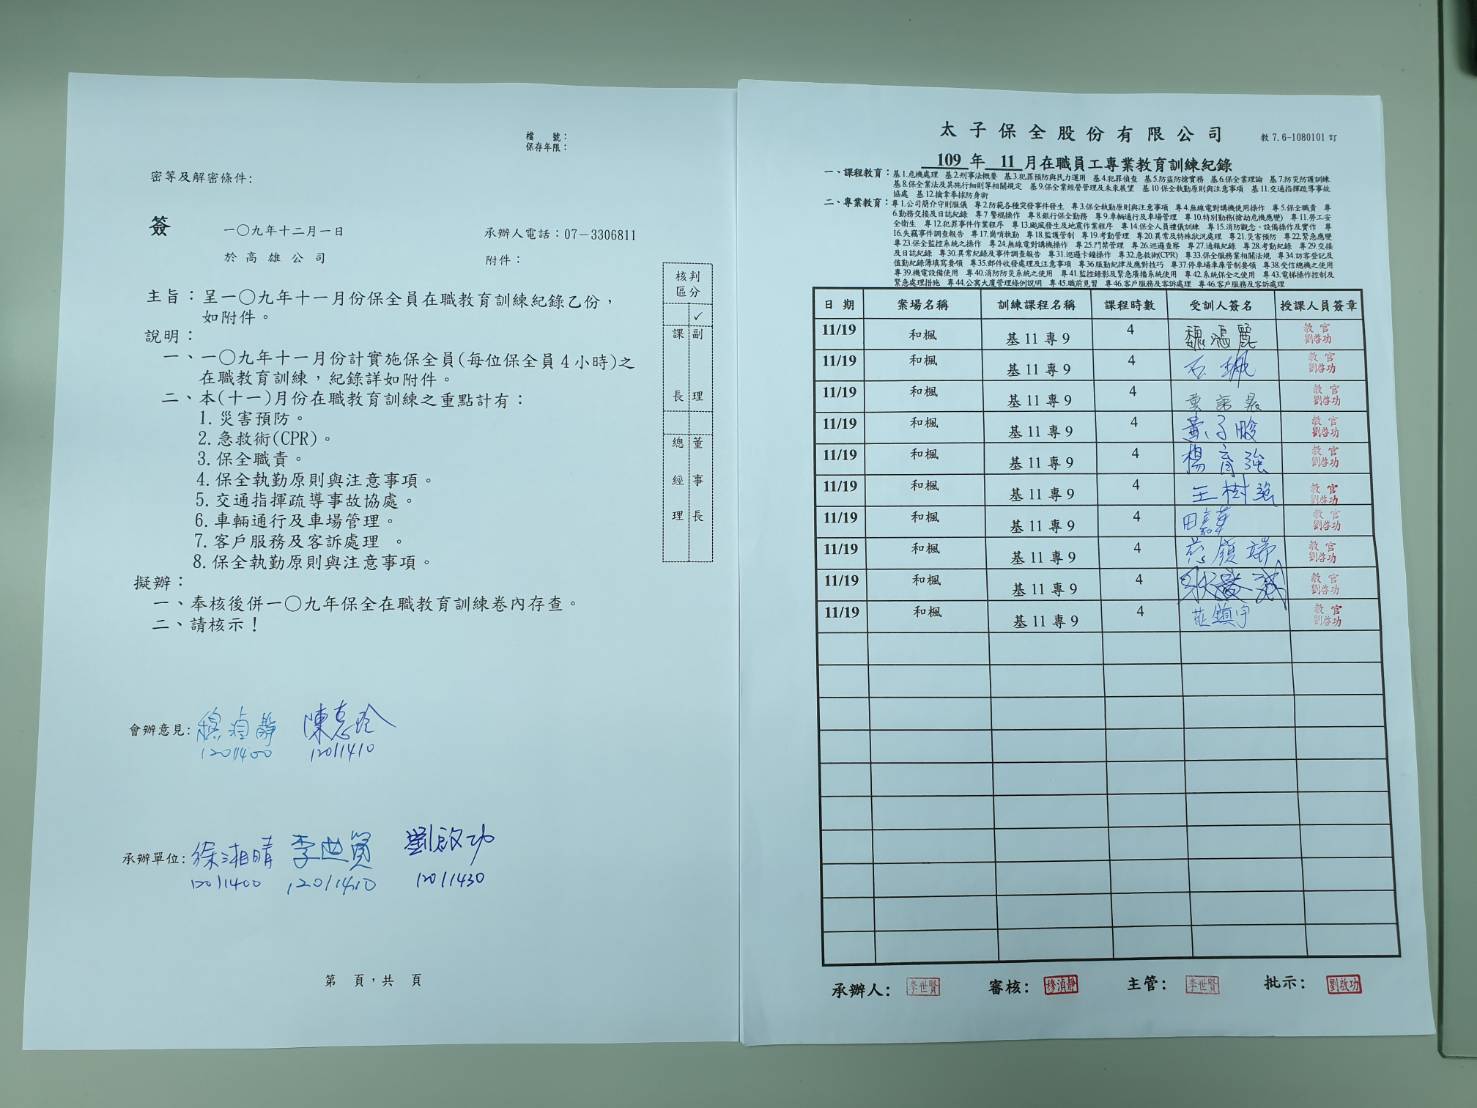 檔　　號：
保存年限：
密等及解密條件：
簽
一〇九年十二月一日
承辦人電話：07-3306811
於高雄公司
附件：
核判區分
✓
課長
副理
總經理
董事長
主旨：呈一〇九年十一月份保全員在職教育訓練紀錄乙份，
如附件。
說明：
一、一〇九年十一月份計實施保全員(每位保全員4小時)之
在職教育訓練，紀錄詳如附件。
二、本(十一)月份在職教育訓練之重點計有：
1.災害預防。
2.急救術(CPR)。
3.保全職責。
4.保全執勤原則與注意事項。
5.交通指揮疏導事故協處。
6.車輛通行及車場管理。
7.客戶服務及客訴處理 。
8.保全執勤原則與注意事項。
擬辦：
一、奉核後併一〇九年保全在職教育訓練卷內存查。
二、請核示！
會辦意見：
1201400 12011410
承辦單位：徐湘晴 李世賢 劉啟功
1201400 1201410 1201430
第　頁，共　頁
太子保全股份有限公司
教7.6-1080101訂
109 年 11 月在職員工專業教育訓練紀錄
一、課程教育：基1.危機處理 基2.刑事法概要 基3.犯罪預防與民力運用 基4.犯罪偵查 基5.防盜防搶實務 基6.保全業理論 基7.防災防護訓練
基8.保全業法及其施行細則等相關規定 基9.保全業經營管理及未來展望 基10保全執勤原則與注意事項 基11.交通指揮疏導事故
協處 基12.擒拿拳摔防身術
二、專業教育：專1.公司簡介守則服儀 專2.防範各種突發事件發生 專3.保全執勤原則與注意事項 專4.無線電對講機使用操作 專5.保全職責 專
6.勤務交接及日誌紀錄 專7警棍操作 專8.銀行保全勤務 專9.車輛通行及車場管理 專10.特別勤務(搶劫危機應變) 專11.勞工安
全衛生 專12.犯罪事件作業程序 專13.颱風發生及地震作業程序 專14.保全人員禮儀訓練 專15.消防觀念、設備操作及實作 專
16.失竊事件調查報告 專17.崗哨執勤 專18.監護管制 專19.考勤管理 專20.異常及特殊狀況處理 專21.災害預防 專22.緊急應變
專23.保全監控系統之操作 專24.無線電對講機操作 專25.門禁管理 專26.巡邏查察 專27.通報紀錄 專28.考勤紀錄 專29交接
及日誌紀錄 專30.異常紀錄及事件調查報告 專31.巡邏卡鐘操作 專32.急救術(CPR) 專33.保全服務業相關法規 專34訪客登記及
值勤紀錄簿填寫要領 專35.郵件收發處理及注意事項 專36服勤紀律及應對技巧 專37.停車場車庫管制要領 專38.受信總機之使用
專39.機電設備使用 專40.消防防災系統之使用 專41.監控錄影及緊急廣播系統使用 專42.系統保全之使用 專43.電梯操作控制及
緊急處理措施 專44.公寓大廈管理條例說明 專45.職前見習 專46.客戶服務及客訴處理 專46.客戶服務及客訴處理
日期 案場名稱 訓練課程名稱 課程時數 受訓人簽名 授課人員簽章
11/19 和楓 基11專9 4 教官劉啓功
11/19 和楓 基11專9 4 教官劉啓功
11/19 和楓 基11專9 4 教官劉啓功
11/19 和楓 基11專9 4 黃子駿 教官劉啓功
11/19 和楓 基11專9 4 楊育強 教官劉啓功
11/19 和楓 基11專9 4 王樹強 教官劉啓功
11/19 和楓 基11專9 4 教官劉啓功
11/19 和楓 基11專9 4 教官劉啓功
11/19 和楓 基11專9 4 教官劉啓功
11/19 和楓 基11專9 4 莊鎮宇 教官劉啓功
承辦人：李世賢 審核：穆湞靜 主管：李世賢 批示：劉啟功